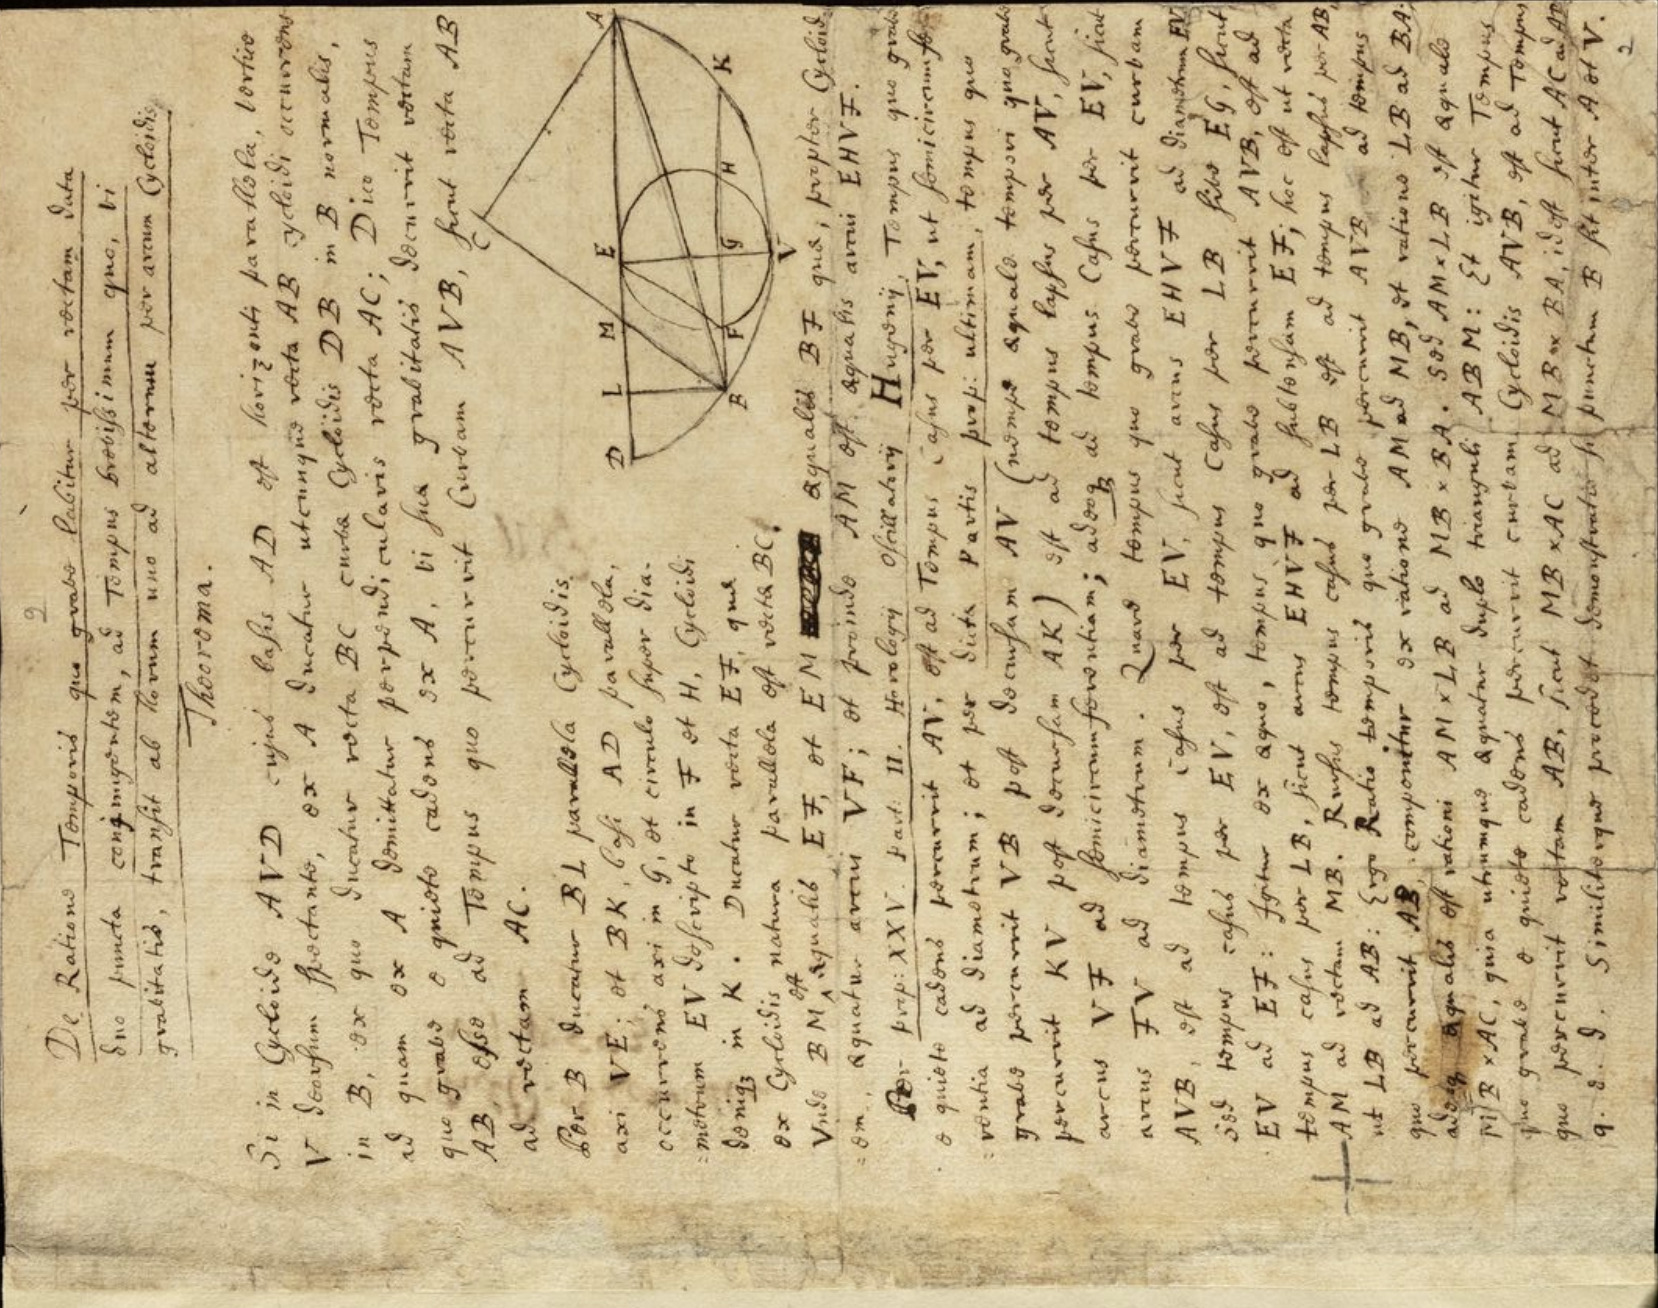 2
De Ratione Temporis quo grave labitur per rectam data
duo puncta conjungentem, ad Tempus brevissimum quo, vi
gravitatis, transit ab horum uno ad alterum per arcum Cycloidis
Theorema.
Si in Cycloide AVD cujus basis AD est horizonti parallela, vertice
V deorsum spectante, ex A ducatur utcunque recta AB cycloidi occurrens
in B, ex quo ducatur recta BC curvæ Cycloidis DB in B normalis,
ad quam ex A demittatur perpendicularis recta AC; Dico Tempus
quo grave e quiete cadens ex A, vi suæ gravitatis decurrit rectam
AB, esse ad Tempus quo percurrit Curvam AVB, sicut recta AB
ad rectam AC.
Per B ducatur BL parallela Cycloidis
axi VE; et BK, basi AD parallela,
occurrens axi in G, et circulo super dia-
=metrum EV descripto in F et H, Cycloidi
deniq3 in K. Ducatur recta EF, quæ
ex Cycloidis natura parallela est rectæ BC.
Unde BM est æqualis EF, et EM æqualis BF quæ, propter Cycloid
=em, æquatur arcui VF; et proinde AM est æqualis arcui EHVF.
Per prop: XXV. Part. II. Horologij Oscillatorij Hugenij, Tempus quo grave
e quiete cadens percurrit AV, est ad Tempus Casus per EV, ut semicircumfe
=rentia ad diametrum; et per dictæ Partis prop: ultimam, tempus quo
grave percurrit VB post decursum AV (nempe æquale tempori quo grave
percurrit KV post decursum AK) est ad tempus lapsus per AV, sicut
arcus VF ad semicircumferentiam; adeoq ad tempus Casus per EV, sicut
arcus FV ad diametrum. Quare tempus quo grave percurrit curvam
AVB, est ad tempus casus per EV, sicut arcus EHVF ad diametrum EV
sed tempus casus per EV, est ad tempus Casus per LB sive EG, sicut
EV ad EF: Igitur ex æquo, tempus quo grave percurrit AVB, est ad
tempus casus per LB, sicut arcus EHVF ad subtensam EF; hoc est ut recta
AM ad rectam MB. Rursus tempus casus per LB est ad tempus lapsus per AB,
ut LB ad AB: Ergo Ratio temporis quo grave percurrit AVB ad tempus
quo percurrit AB, componitur ex ratione AM ad MB, et ratione LB ad BA;
adeoq æqualis est rationi AM × LB ad MB × BA. Sed AM × LB est æquale
MB × AC, quia utrumque æquatur duplo trianguli ABM: Et igitur Tempus
quo grave e quiete cadens percurrit curvam Cycloidis AVB, est ad Tempus
quo percurrit rectam AB, sicut MB × AC ad MB × BA, id est sicut AC ad AB
q. e. d. Similiterque procedet demonstratio si punctum B sit inter A et V.
2
A
C
K
E
H
G
V
M
F
L
B
D